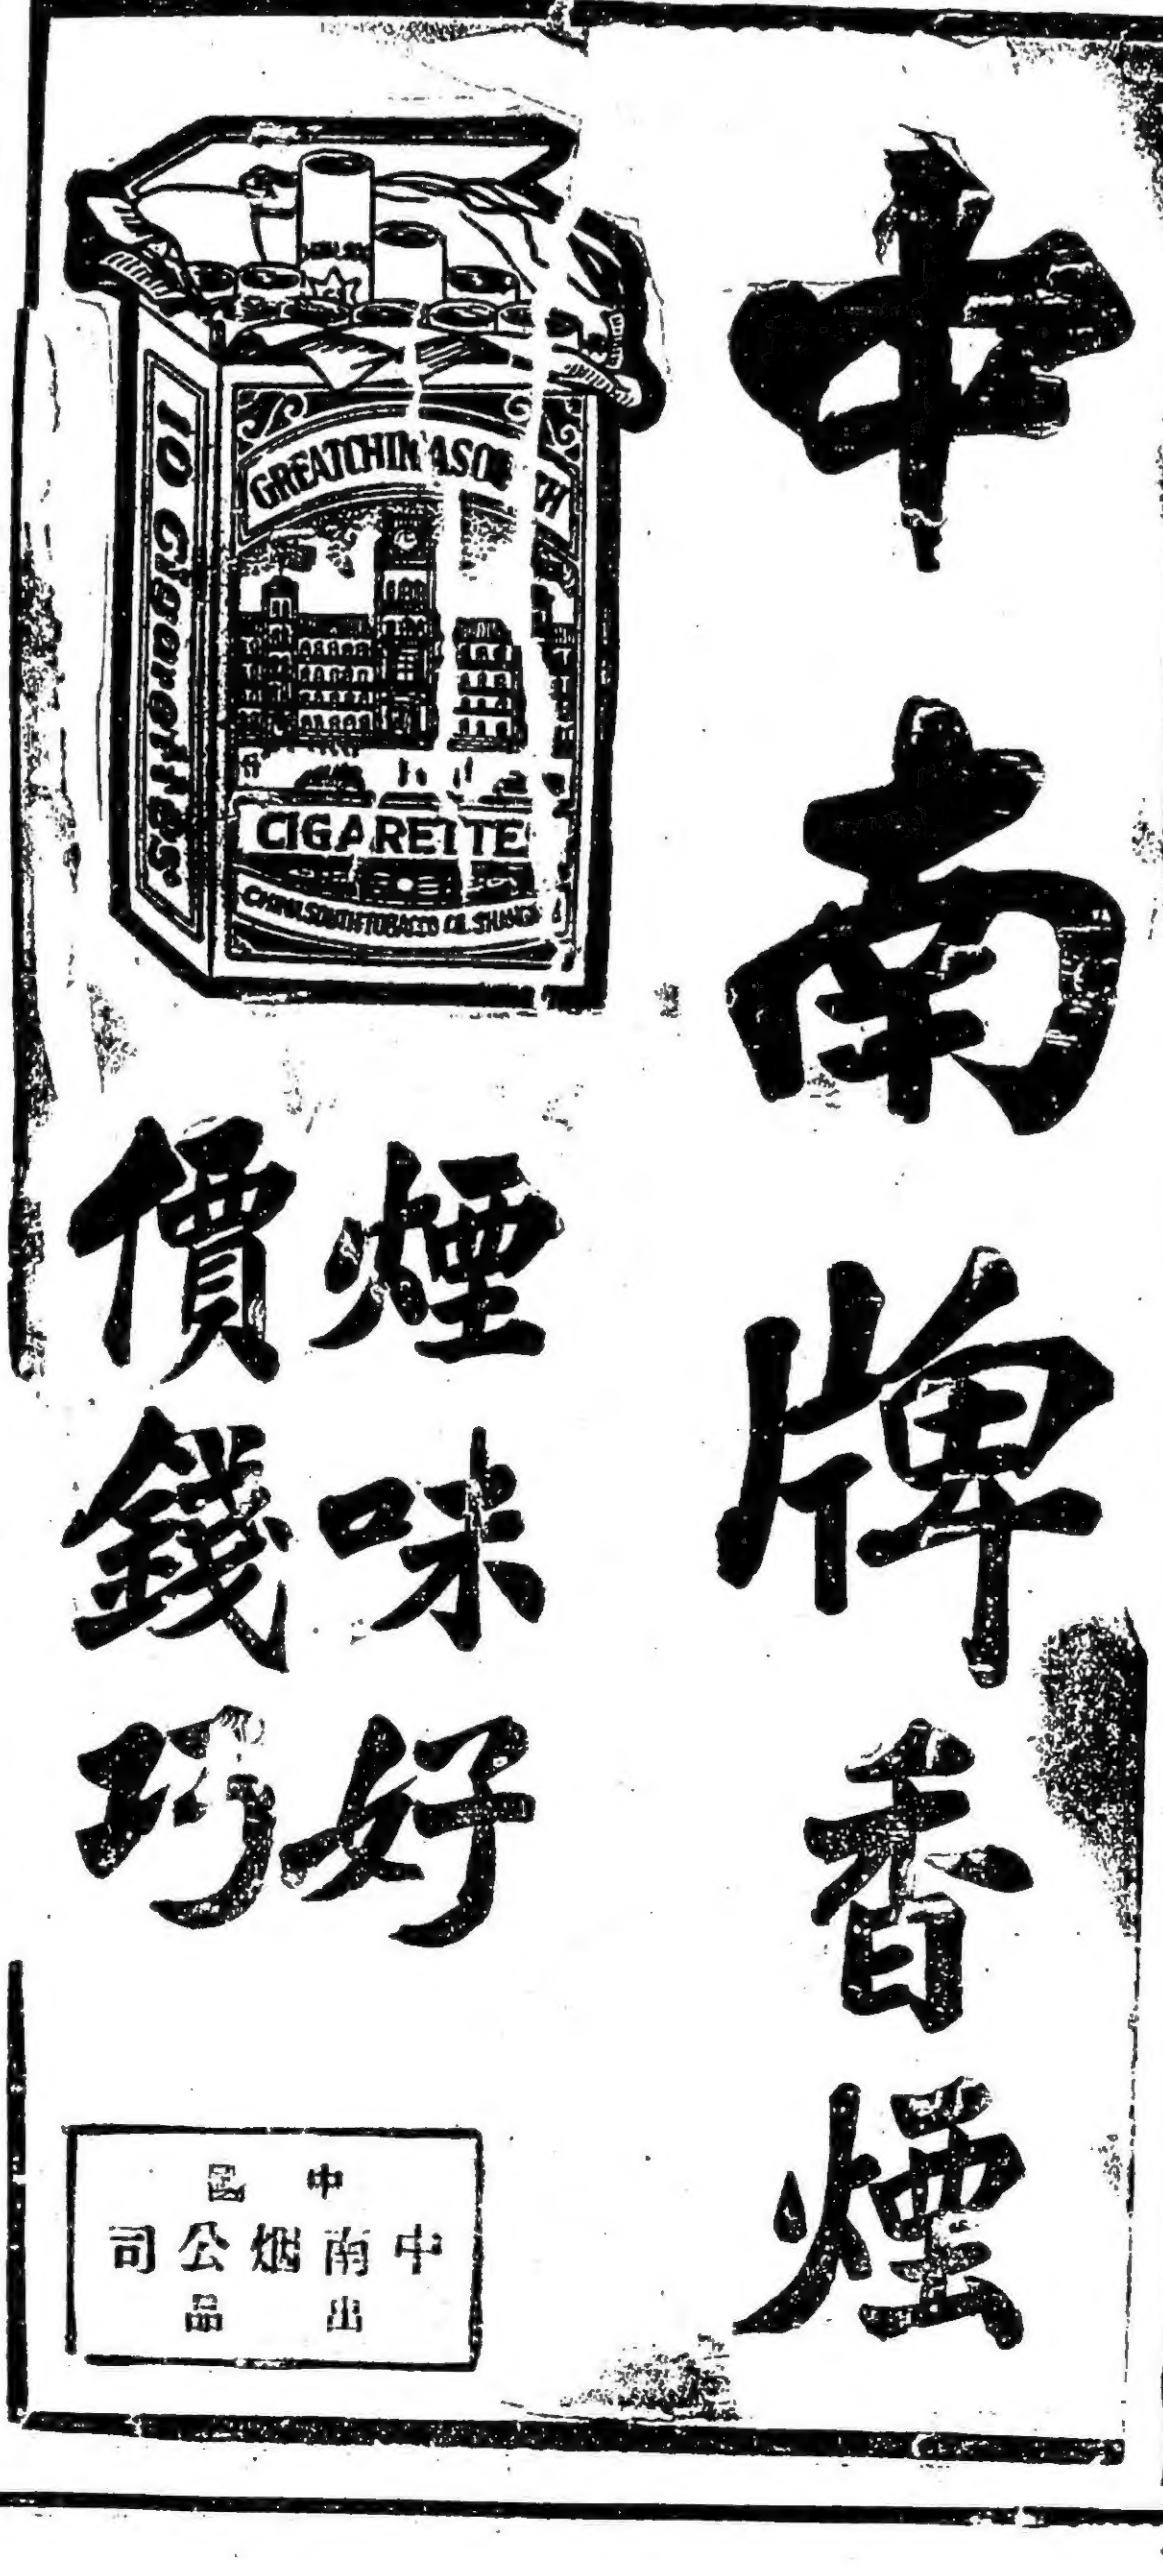 中南牌香煙
煙味好
價錢巧
10 Cigarettes
GREAT CHINA SOUTH
CIGARETTE
CHINA SOUTH TOBACCO CO. SHANGHAI
中國
中南烟公司
出品